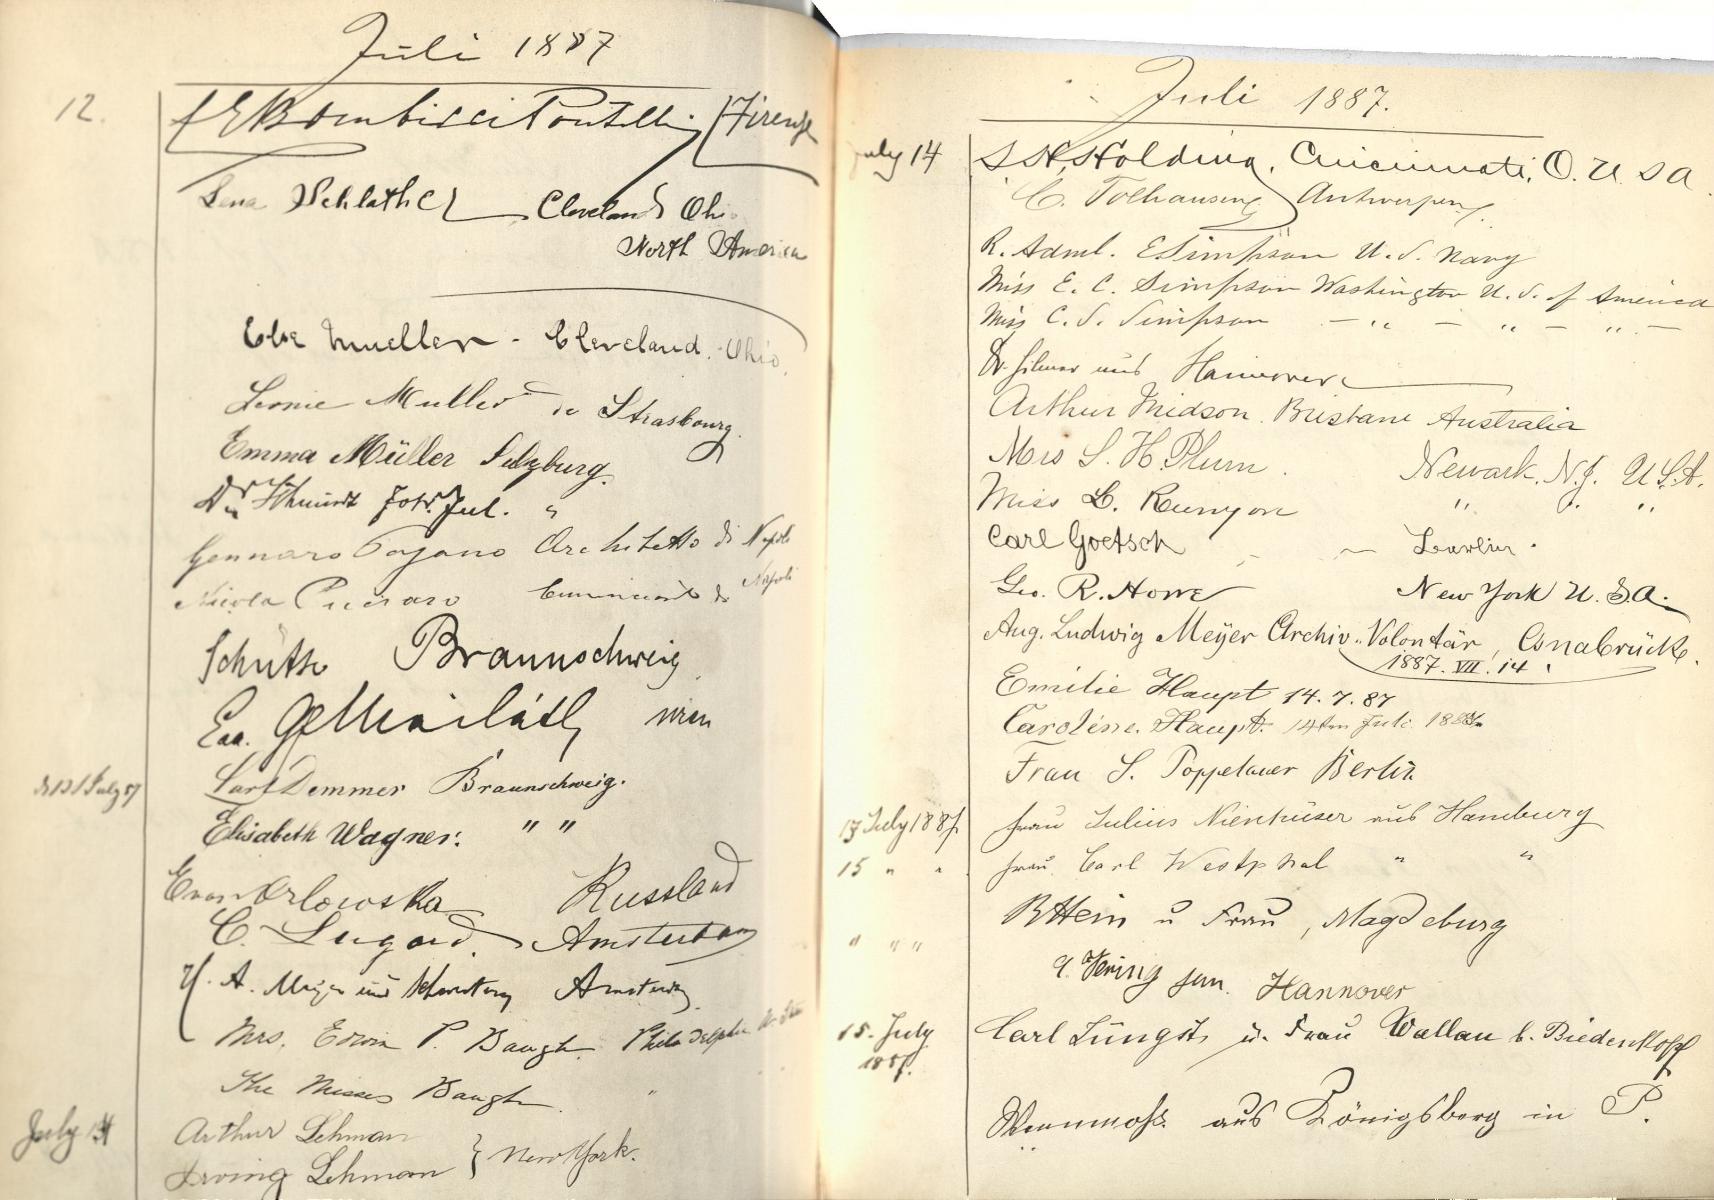 Juli 1887
12.
Firenze
Lena Schlather Cleveland Ohio
North America
Else Mueller - Cleveland. Ohio.
Leonie Muller de Strasbourg.
Emma Müller Sulzburg.
Dr Schmidt Jul. "
Gennaro Pagano Architetto di Napoli
Nicola di Napoli
Schütte Braunschweig
Gf Mailáth Wien
13 July 87
Carl Demmer Braunschweig.
Elisabeth Wagner. " "
von Orlowska Russland
C. Lugard Amsterdam
H. A. Meijer und Amsterdam
Mrs. Edwin P. Baugh. Philadelphia
The Misses Baugh "
July 14
Arthur Lehman
Irving Lehman } New York.
Juli 1887.
July 14
S. H. Holding, Cincinnati, O. U S A
C. Tolhausen Antwerpen
R. Adml. E Simpson U. S. Navy
Miss E. C. Simpson Washington U. S. of America
Miss C. S. Simpson — " — " — " —
Dr. aus Hannover
Arthur Midson. Brisbane Australia
Mrs S. H. Plum. Newark. N.J. U.S.A.
Miss L. Runyon " " "
Carl Goetsch - ~ Berlin.
Geo. R. Howe New York U. S. A.
Aug. Ludwig Meÿer Archiv-Volontär, Osnabrück.
1887. VII. 14.
Emilie Haupt 14. 7. 87
Caroline. Haupt. 14ten Juli
Frau S. Poppelauer Berlin
13 July 1887
Frau Julius Nienhüser aus Hamburg
15 " "
Frau. Carl Westphal " "
B Hein u Frau, Magdeburg
" " "
Vering sen. Hannover
15. July
1887.
Carl Jüngst u. Frau Wallau b. Biedenkopf
aus Königsberg in P.